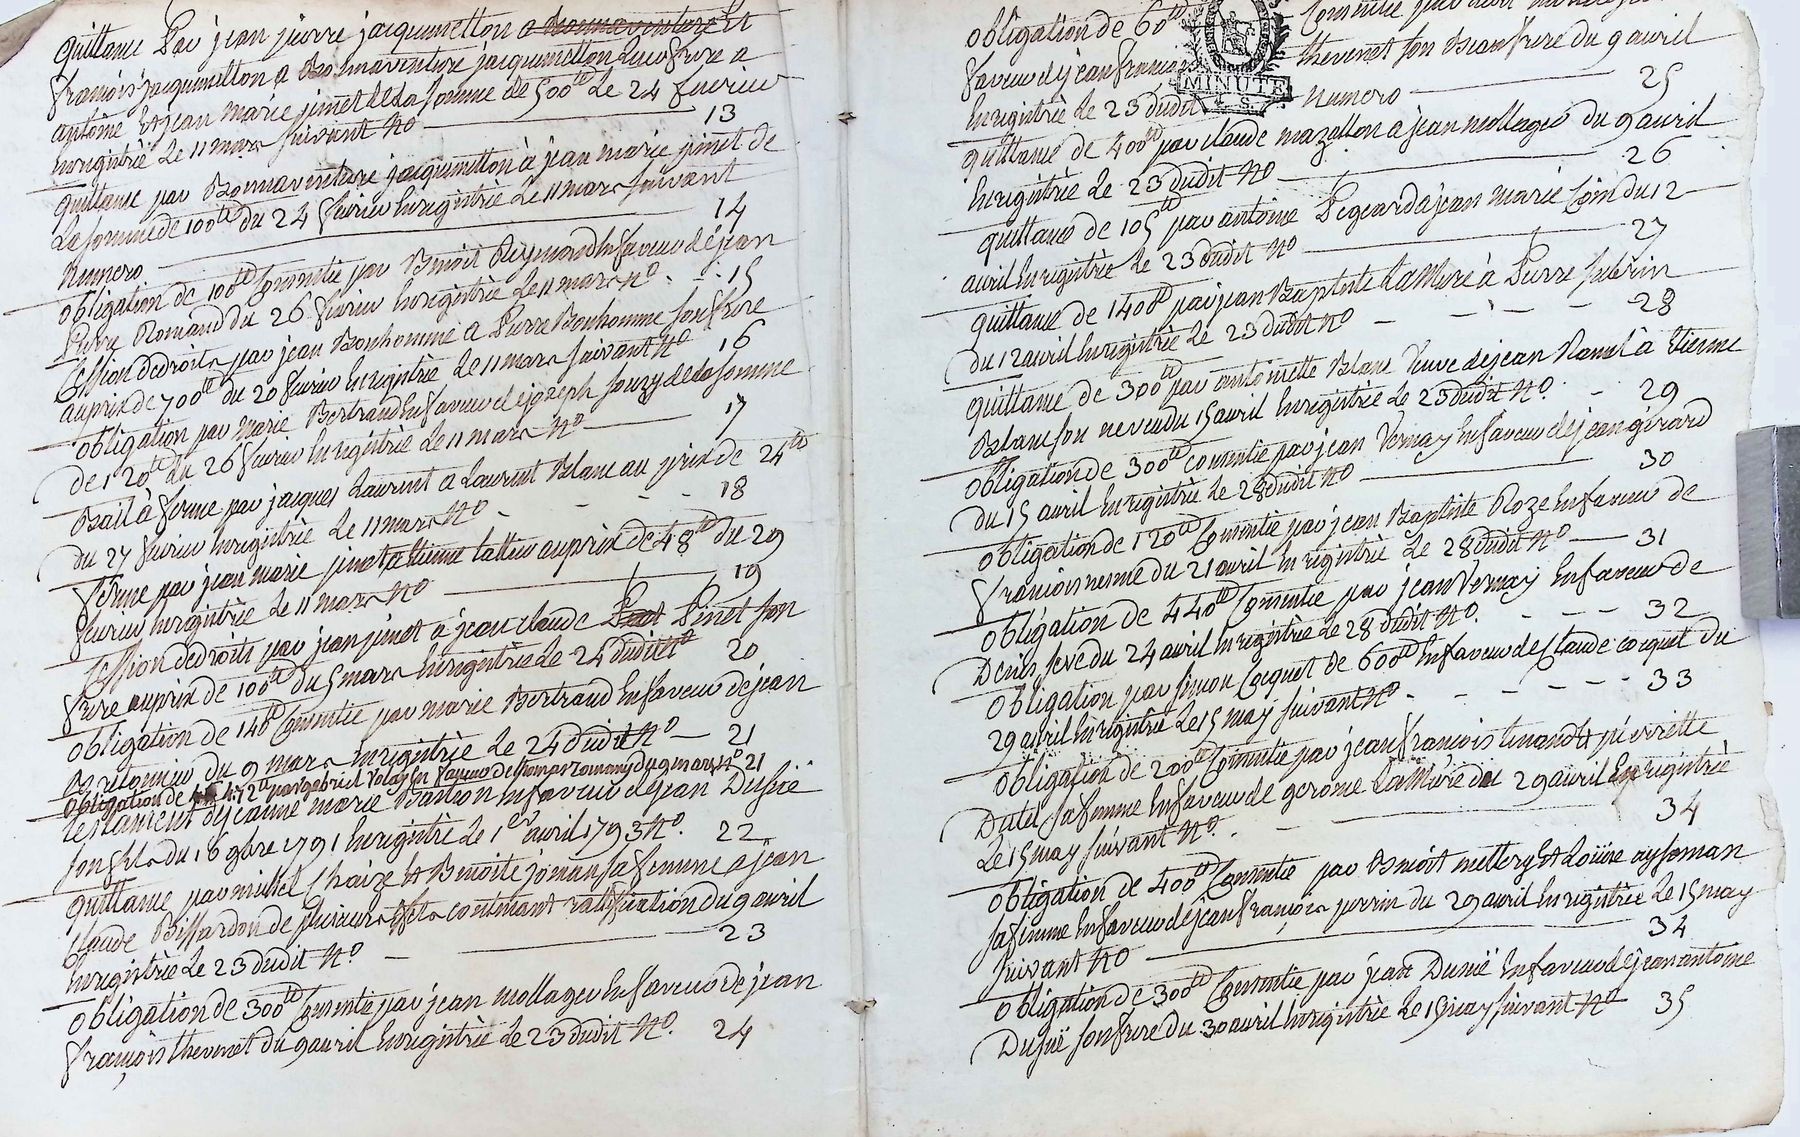 quittance Par jean pierre jacqumetton a Bonnaventure Et
françois jacqumetton a Bonnaventure jacqumetton Leur frere a
antoine Et jean marie pinet de La somme de 500tt Le 24 fevrier
Enregistrée Le 11 mars suivant No 13
quittance par Bonnaventure jacqumetton à jean marie pinet de
La somme de 100tt du 24 fevrier Enregistrée Le 11 mars suivant
Numero 14
obligation de 100tt Consentie par Benoit Reymond En faveur de jean
Pierre Romand du 26 fevrier Enregistrée Le 11 mars No 15
Cession de droits par jean Bonhomme a Pierre Bonhomme son frere
au prix de 700tt du 20 fevrier Enregistrée Le 11 mars suivant No 16
obligation par marie Bertrand En faveur de joseph souzy de la somme
de 120tt du 26 fevrier Enregistrée Le 11 mars No 17
Bail à ferme par jacques Laurent a Laurent Blanc au prix de 24tt
du 27 fevrier Enregistrée Le 11 mars No 18
ferme par jean marie pinet a Etienne au prix de 48tt du 29
fevrier Enregistrée Le 11 mars No 19
Cession de droits par jean pinet a jean claude Pinet son
frere au prix de 100tt du 5 mars Enregistrée Le 24 dudit No 20
obligation de 140tt Consentie par marie Bertrand En faveur de jean
du 9 mars Enregistrée Le 24 dudit No 21
obligation de 172tt par gabriel En faveur de thomas du 9 mars No 21
testament de jeanne marie En faveur de jean Dusné
son fils du 16 9bre 1791 Enregistré Le 1er avril 1793 No 22
quittance par michel Chaize Et Benoite sa femme a jean
Claude Bissardon de plusieurs effets contenant ratification du 9 avril
Enregistrée Le 23 dudit No 23
obligation de 300tt Consentie par jean mollager En faveur de jean
françois thevenet du 9 avril Enregistrée Le 23 dudit No 24
obligation de 60tt Consentie par
faveur de jean françois thevenet son Beau frere du 9 avril
MINUTE
Enregistrée Le 23 dudit numero 25
quittance de 400tt par claude mazellon a jean mollager du 9 avril
Enregistrée Le 23 dudit No 26
quittance de 105tt par antoine a jean marie Coin du 12
avril Enregistrée Le 23 dudit No 27
quittance de 1400tt par jean Baptiste Lamure à Pierre
du 12 avril Enregistrée Le 23 dudit No 28
quittance de 300tt par antoinette Blanc Veuve de jean à Etienne
Blanc son neveu du 15 avril Enregistrée Le 23 dudit No 29
obligation de 300tt consentie par jean Vernay En faveur de jean gérard
du 15 avril Enregistrée Le 28 dudit No 30
obligation de 120tt Consentie par jean Baptiste Roze En faveur de
françois nesme du 21 avril Enregistrée Le 28 dudit No 31
obligation de 440tt Consentie par jean Vernay En faveur de
Denis seve du 24 avril Enregistrée Le 28 dudit No 32
obligation par simon Coquet de 600tt En faveur de Claude coquet du
29 avril Enregistrée Le 15 may suivant No 33
obligation de 200tt Consentie par jean françois tenand Et pierrette
Dutel sa femme En faveur de gerome Lamure du 29 avril Enregistrée
Le 15 may suivant No 34
obligation de 400tt Consentie par Benoit mettery Et
sa femme En faveur de jean françois perrin du 29 avril Enregistrée Le 15 may
suivant No 34
obligation de 300tt Consentie par jean Dusné En faveur de jean antoine
Dusné son frere du 30 avril Enregistrée Le 15 may suivant No 35